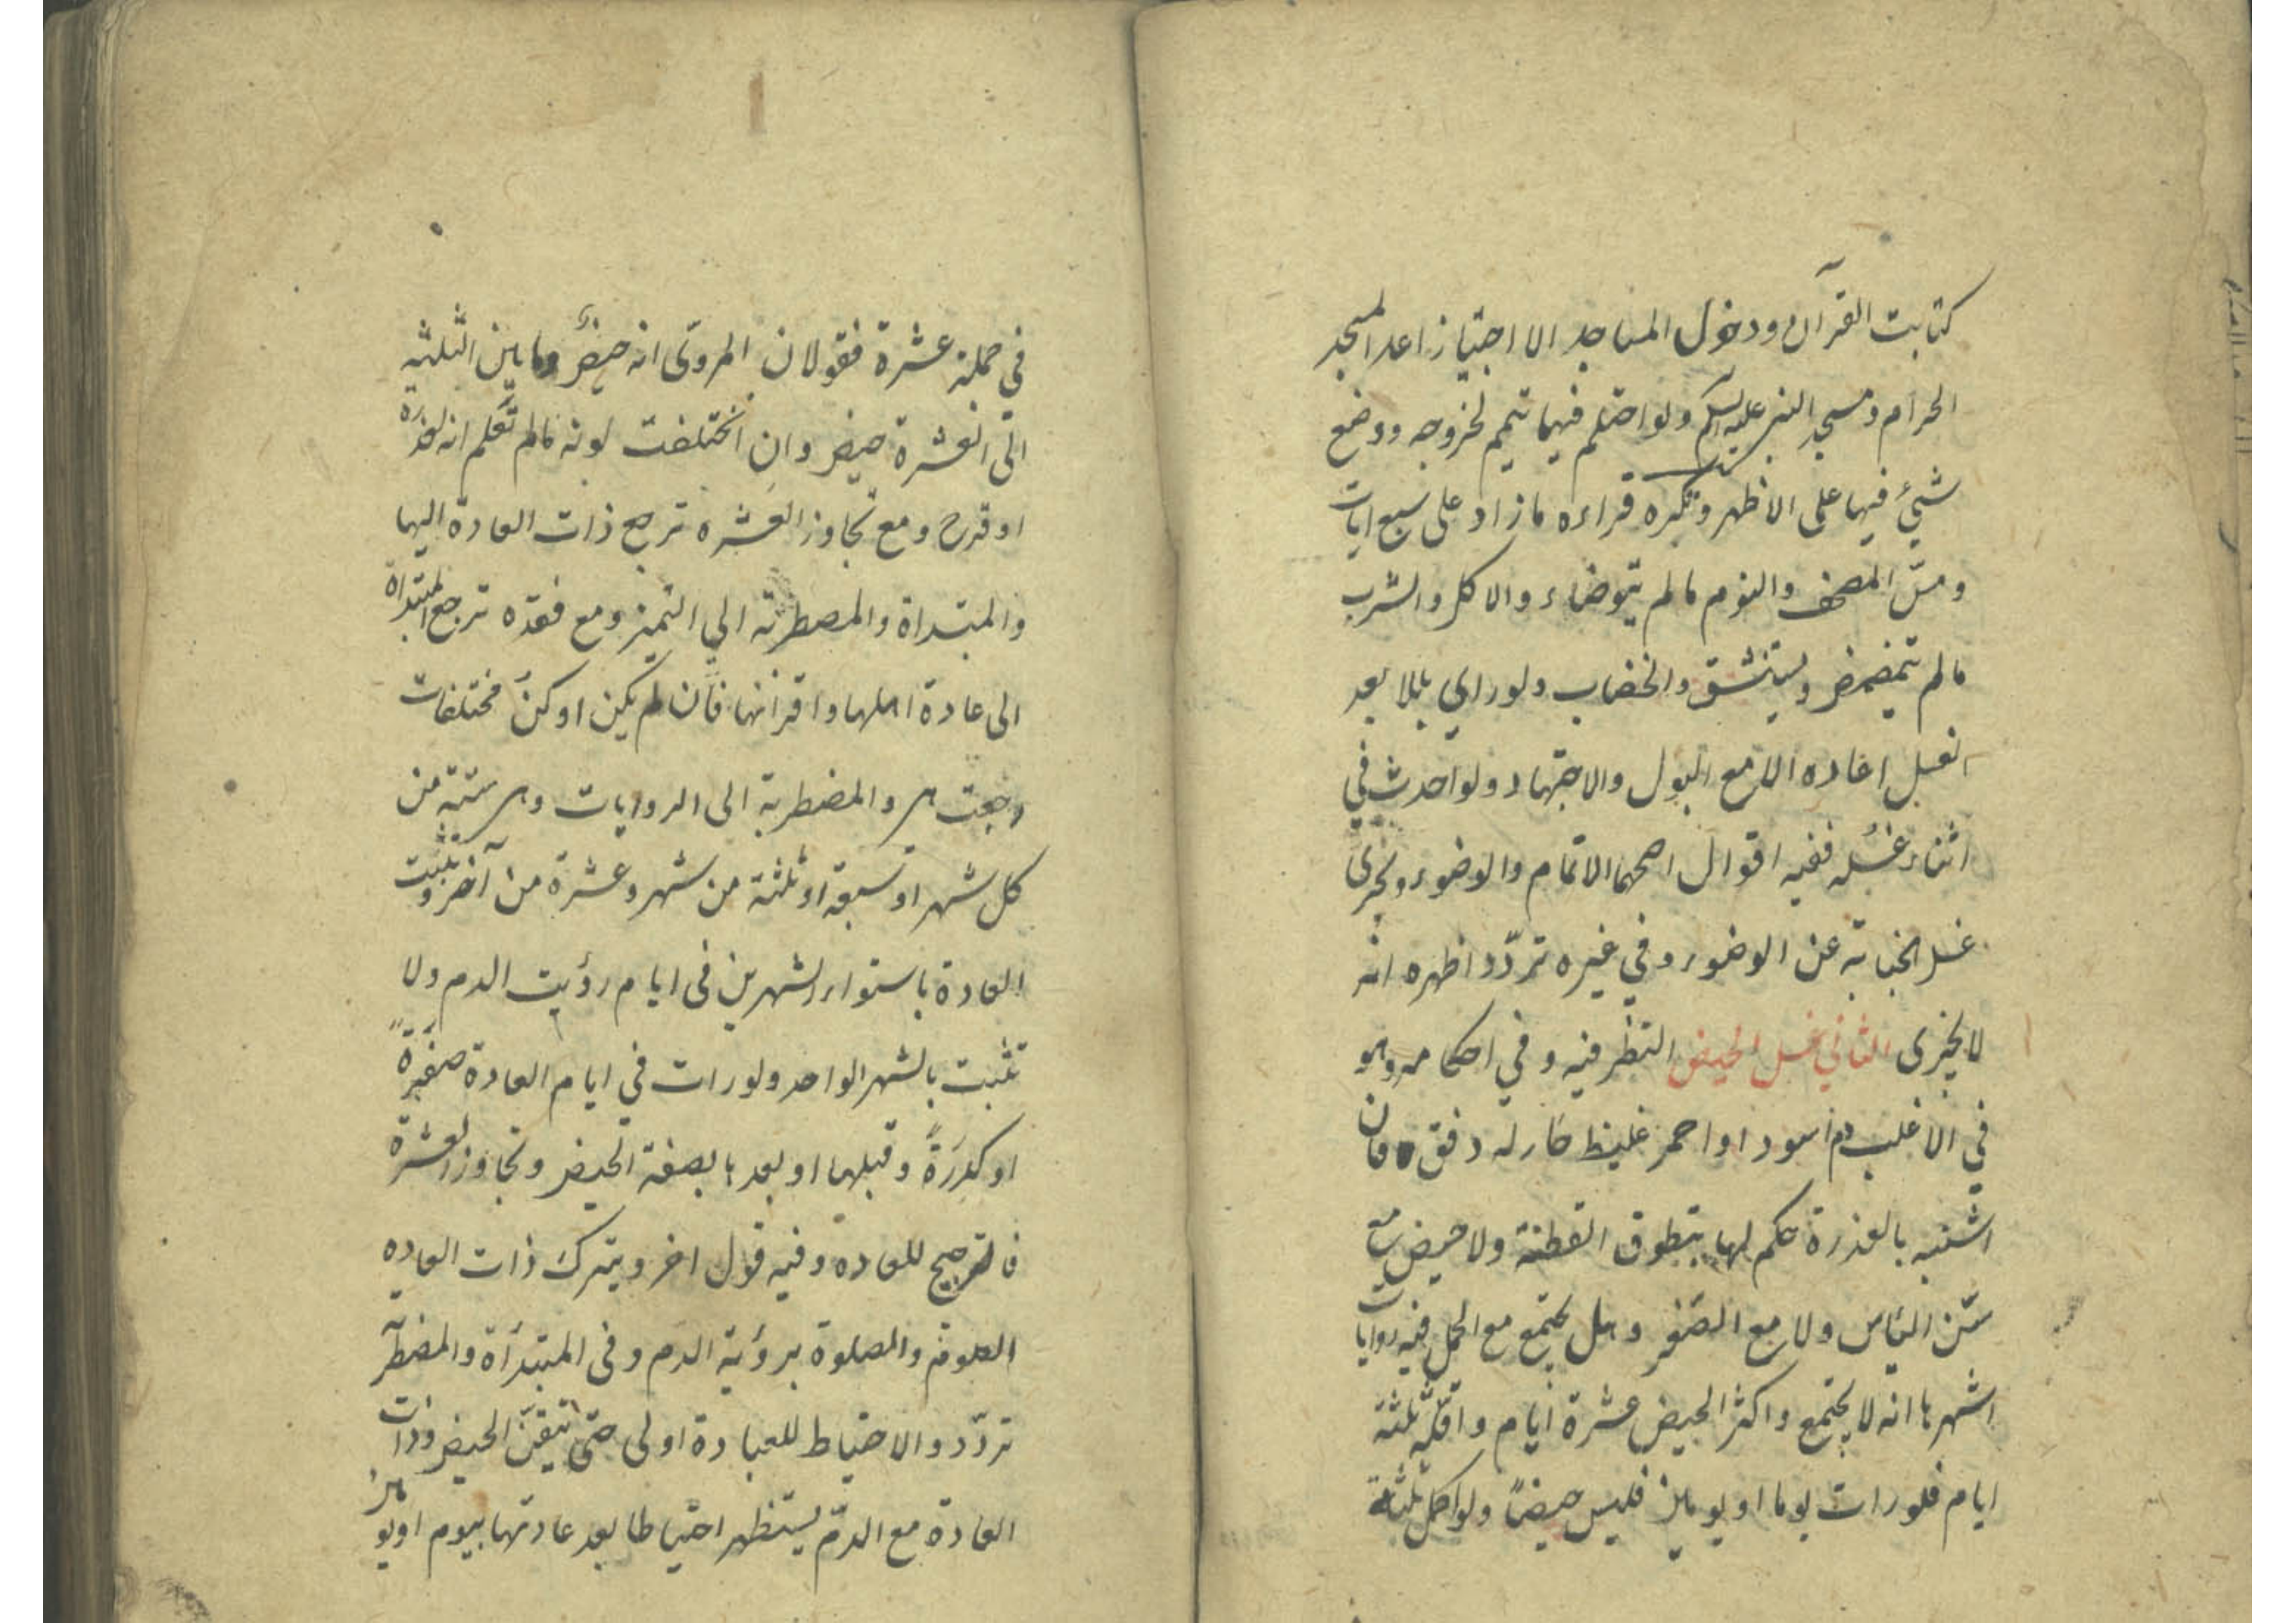 كتابت القرآن ودخول المساجد الا اجتيازا عدا المسجد
الحرام ومسجد النبي عليه السلم ولو احتلم فيهما تيمم لخروجه ووضع
شيئ فيها على الاظهر وتكره قراءه ما زاد على سبع ايات
ومسّ المصحف والنوم مالم يتوضاء والاكل والشرب
مالم يتمضمض ويستنشق والخضاب ولو راي بللا بعد
الغسل اعاده الا مع البول والاجتهاد ولو احدث في
اثناء غسله ففيه اقوال اصحها الاتمام والوضوء ويجزى
غسل الجنابة عن الوضوء وفي غيره تردّد اظهره انه
لا يجزى الثاني غسل الحيض النظر فيه وفي احكامه وهو
في الاغلب دم اسود او احمر غليظ حار له دفق فان
اشتبه بالعذرة حكم لها بتطوق القطنة ولا حيض مع
سّن الياس ولا مع الصغر وهل يجتمع مع الحمل فيه روايات
اشهرها انه لا يجتمع واكثر الحيض عشرة ايام واقلّه ثلثة
ايام فلو رات يوما او يومين فليس حيضاً ولو كمل ثلثة
في جملة عشرة فقولان المروىّ انه حيضٌ وما بين الثلثه
الى العشرة حيض وان اختلفت لونه مالم تعلم انه لعذرة
او قرح ومع تجاوز العشره ترجع ذات العادة اليها
والمبتداة والمضطربه الي التميز ومع فقده ترجع المبتداة
الى عادة اهلها واقرانها فان لم يكن او كنّ مختلفات
رجعت هى والمضطربة الى الروايات وهى ستة من
كل شهر او سبعة او ثلثة من شهر وعشرة من آخر وتثبت
العادة باستواء الشهرين فى ايام رؤيت الدم ولا
تثبت بالشهر الواحد ولو رات في ايام العادة صفرةً
او كدرَةً وقبلها او بعدها بصفة الحيض وتجاوز العشرة
فالترجيح للعاده وفيه قول اخر ويترك ذات العاده
الصوم والصلوة برؤية الدم وفى المبتدأة والمضطربة
تردّد والاحتياط للعبادة اولى حتى تتيقّن الحيض وذات
العادة مع الدم يستظهر احتياطا بعد عادتها بيوم او يومين